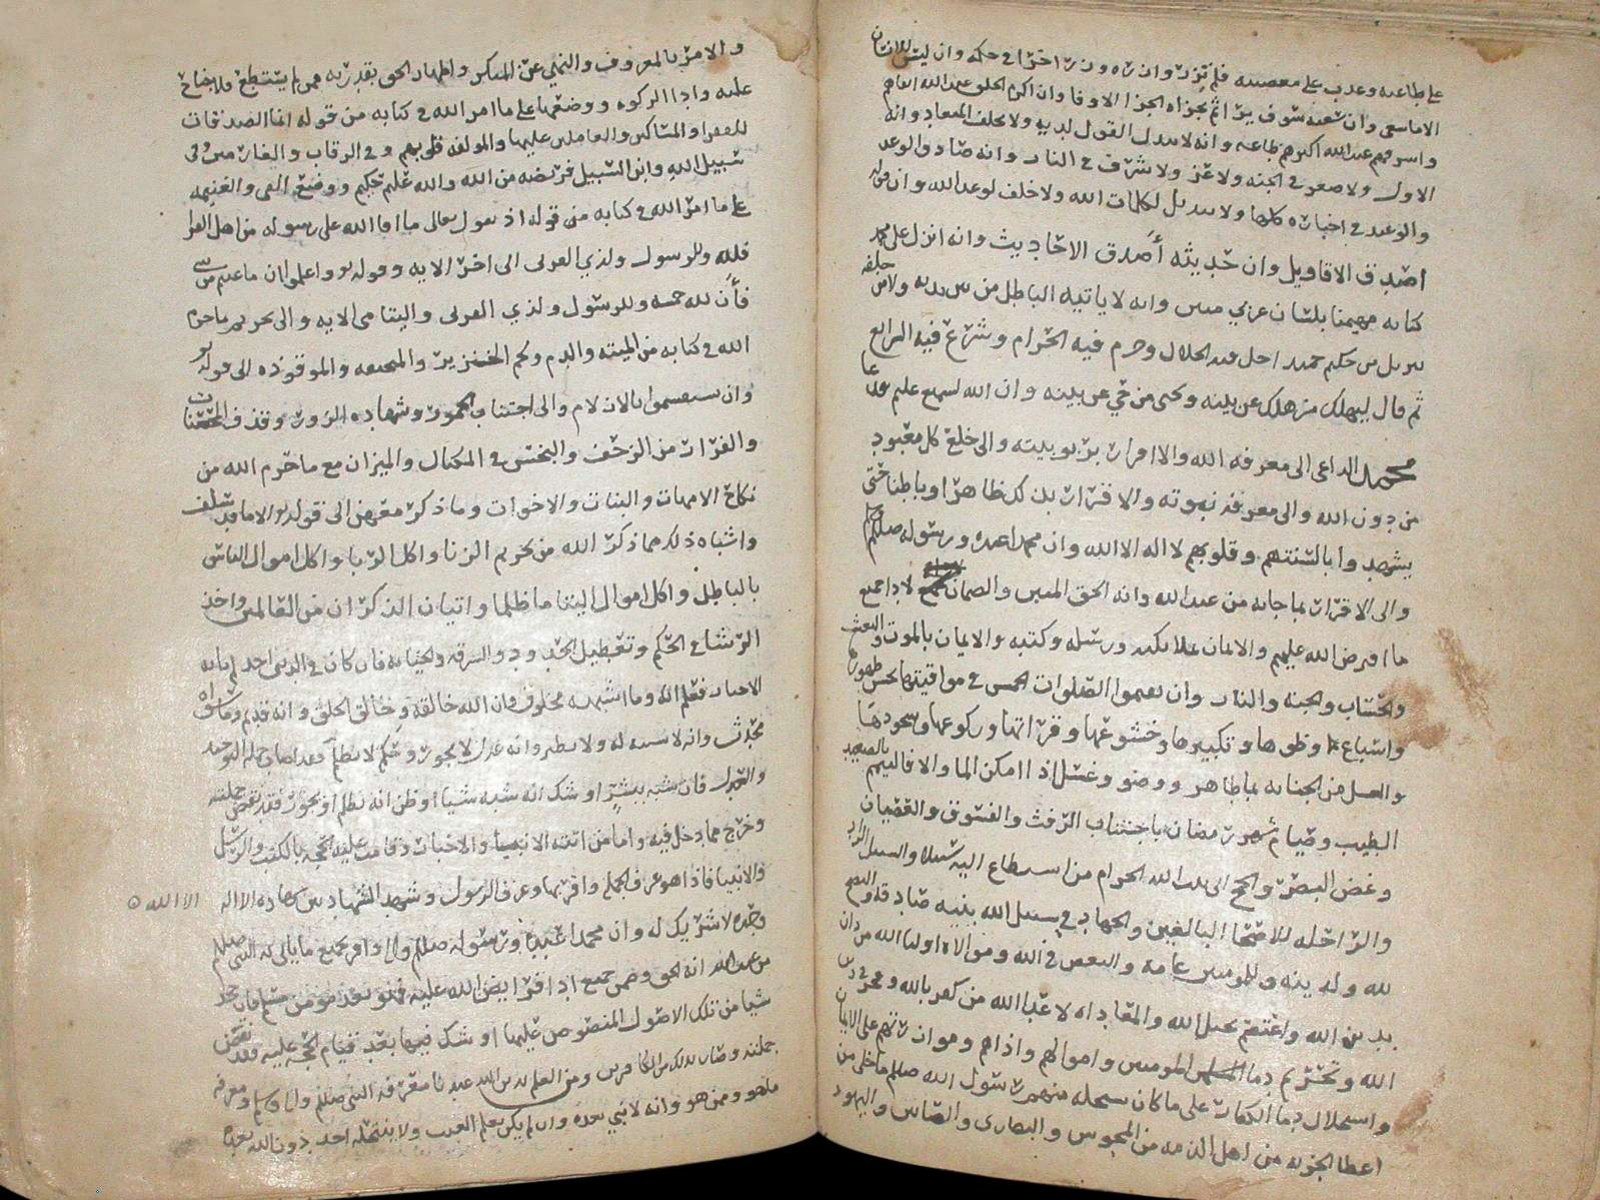 على طاعته وعدب على معصيته فلم تزر وازره وزر اخرا في حكمه وان ليس للانسان
الا ما سعى وان سعيه سوف يرا ثم يجزاه الجزا الاوفا وان اكرم الخلق عند الله اتقاهم
واسرفهم عند الله اكثرهم طاعه وانه لا يبدل القول لديه ولا يخلف الميعاد وانه
الاول ولا صغر في الجنه ولا عز ولا شرف في النار وانه صادق الوعد
والوعيد في اخباره كلها ولا تبديل لكلمات الله ولا خلف لوعد الله وان قوله
اصدق الاقاويل وان حديثه أصدق الاحاديث وانه انزل على محمد
كتابه مهيمنا بلسان عربي مبين وانه لا ياتيه الباطل من بين يديه ولا من خلفه
تنزيل من حكيم حميد احل فيه الحلال وحرم فيه الحرام وشرع فيه الشرايع
ثم قال ليهلك من هلك عن بينه ويحيى من حي عن بينه وان الله لسميع عليم
محمد الداعي الى معرفه الله والاقرار بربوبيته والى خلع كل معبود
من دون الله والى معرفة نبوته والاقرار بذلك ظاهرا وباطنا حتى
يشهدوا بالسنتهم وقلوبهم لا اله الا الله وان محمدا عبده ورسوله صلى الله
والى الاقرار بما جا به من عند الله وانه الحق المبين والضمان لادا جميع
ما افترض الله عليهم والايمان بملائكته ورسله وكتبه والايمان بالموت والبعث
والحساب والجنه والنار وان يقيموا الصلوات الخمس في مواقيتها بحسن طهورها
واسباغ وضوها وتكبيرها وخشوعها وقراتها وركوعها وسجودها
والغسل من الجنابه بما طاهر ووضو وغسل اذا امكن الما والا فاليتمم بالصعيد
الطيب وصيام شهر رمضان باجتناب الرفث والفسوق والعصيان
وغض البصر والحج الى بيت الله الحرام من استطاع اليه سبيلا والسبيل الزاد
والراحله للاصحا البالغين والجهاد في سبيل الله بنيه صادقه والنصح
لله ولدينه وللمومنين عامه والبغض في الله وموالاه اوليا الله من دان
بدين الله واعتصم بحبل الله والمعاداه لاعدا الله من كفر بالله
الله وتحريم دما المسلمين المومنين واموالهم واذاهم
واستحلال دما الكفار على ما كان يستحله منهم رسول الله صلعم ما خلى من
اعطا الجزيه من اهل الذمه من المجوس والنصارى والصابين واليهود
والامر بالمعروف والنهي عن المنكر واظهار الحق بقدرته فمن لم يستطع فلا جناح
عليه وادا الزكوه ووضعها على ما امر الله في كتابه من قوله انما الصدقات
للفقرا والمساكين والعاملين عليها والمولفه قلوبهم وفي الرقاب والغارمين وفي
سبيل الله وابن السبيل فريضه من الله والله عليم حكيم ووضع الفي والغنيمه
على ما امر الله في كتابه من قوله اذ يقول تعالى ما افا الله على رسوله من اهل القرا
فلله وللرسول ولذي القربى الى اخر الايه وقوله واعلموا ان ما غنمتم من شي
فأن لله خمسه وللرسول ولذي القربى واليتامى الايه والى تحريم ما حرم
الله في كتابه من الميته والدم ولحم الخنزير والمنخنقه والموقوذه الى قوله
وان تستقسموا بالازلام والى اجتناب الخمور وشهاده الزور وقذف المحصنات
والفرار من الزحف والبخس في المكيال والميزان مع ما حرم الله من
نكاح الامهات والبنات والاخوات وما ذكر معهن الى قوله الا ما قد سلف
واشباه ذلك مما ذكر الله من تحريم الزنا واكل الربا واكل اموال الناس
بالباطل واكل اموال اليتاما ظلما واتيان الذكران من العالمين واخذ
الرشا على الحكم وتعطيل الحدود والسرقه والخيانه
الاحبار فتعلم انه وما اشبهه مخلوق وان الله خالقه وخالق الخلق وانه قديم وما سواه
محدث وانه لا شبه له ولا نظير وانه عدل لا يجور وحكيم لا يظلم فقد اصاب جمله التوحيد
والعدل فان شبه ببشر او شك انه شبه شيا او ظن انه يظلم او يجور فقد نقض جملته
وخرج مما دخل فيه واما من اتته الانبيا والاخبار وقامت عليه الحجه بالكتب والرسل
والانبيا فاذا هو عرف الجمله واقر بها وعرف الرسول وشهد الشهادتين شهاده الا اله الا الله
وحده لا شريك له وان محمدا عبده ورسوله صلعم واقر بجميع ما ياتي به النبي صلعم
من عند الله انه الحق وضمن جميع ادا فرايض الله عليه فهو بعد مومن مسلم فان جحد
شيا من تلك الاصول المنصوص عليها او شك فيها بعد قيام الحجه عليه فقد نقض
جملته وصار بذلك من الكافرين ومن العلم بدين الله عندنا معرفه النبي صلعم
ما هو وممن هو وانه لا نبي بعده وان لم يكن يعلم الغيب ولا ينتحله احد دون الله